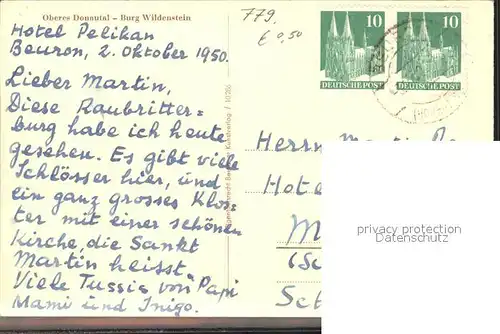 Oberes Donautal - Burg Wildenstein
779.
€ 0,50
Hotel Pelikan
Beuron, 2. Oktober 1950.
Lieber Martin,
Diese Raubritter=
burg habe ich heute
gesehen. Es gibt viele
Schlösser hier, und
ein ganz grosses Klos=
ter mit einer schönen
Kirche, die Sankt
Martin heisst.
Viele Tussis von Papi
Mami und Inigo.
10
10
DEUTSCHE POST
DEUTSCHE POST
Herrn
Hote
M
(Sc
privacy protection
Datenschutz